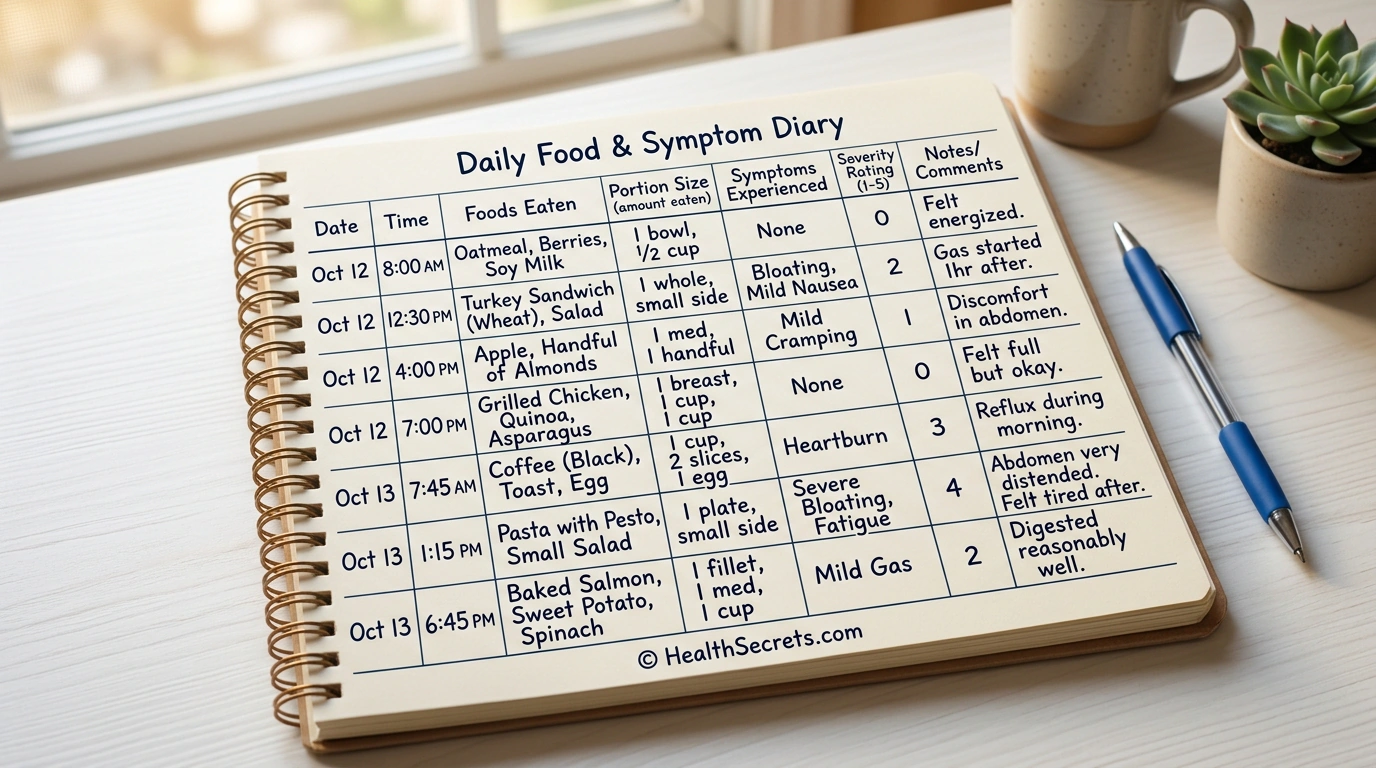 Daily Food & Symptom Diary
Date
Time
Foods Eaten
Portion Size
(amount eaten)
Symptoms
Experienced
Severity
Rating
(1-5)
Notes/
Comments
Oct 12
8:00 AM
Oatmeal, Berries,
Soy Milk
1 bowl,
1/2 cup
None
0
Felt
energized.
Oct 12
12:30 PM
Turkey Sandwich
(Wheat), Salad
1 whole,
small side
Bloating,
Mild Nausea
2
Gas started
1hr after.
Oct 12
4:00 PM
Apple, Handful
of Almonds
1 med,
1 handful
Mild
Cramping
1
Discomfort
in abdomen.
Oct 12
7:00 PM
Grilled Chicken,
Quinoa,
Asparagus
1 breast,
1 cup,
1 cup
None
0
Felt full
but okay.
Oct 13
7:45 AM
Coffee (Black),
Toast, Egg
1 cup,
2 slices,
1 egg
Heartburn
3
Reflux during
morning.
Oct 13
1:15 PM
Pasta with Pesto,
Small Salad
1 plate,
small side
Severe
Bloating,
Fatigue
4
Abdomen very
distended.
Felt tired after.
Oct 13
6:45 PM
Baked Salmon,
Sweet Potato,
Spinach
1 fillet,
1 med,
1 cup
Mild Gas
2
Digested
reasonably
well.
© HealthSecrets.com